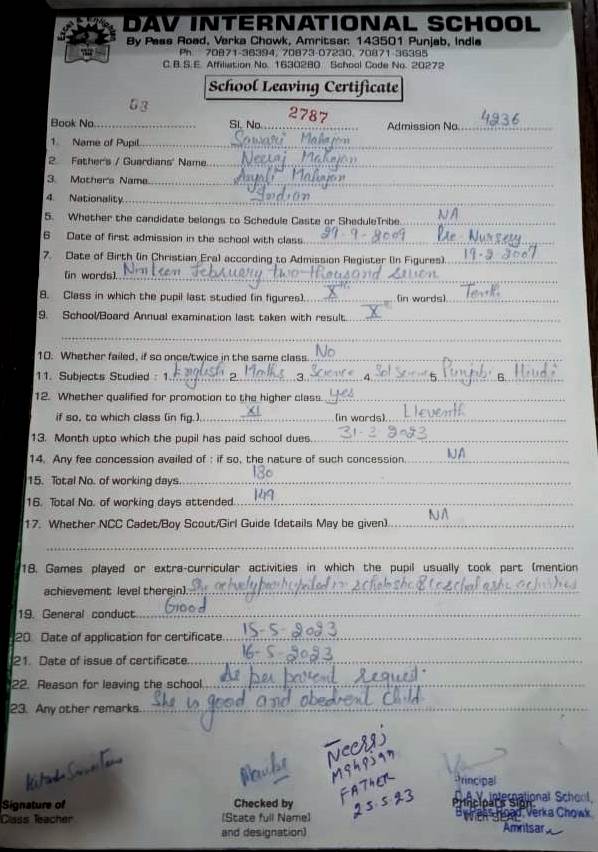 DAV INTERNATIONAL SCHOOL
By Pass Road, Verka Chowk, Amritsar. 143501 Punjab, India
Ph. : 70871-36394, 70873-07230, 70871-36395
C.B.S.E. Affiliation No. 1630280 School Code No. 20272
School Leaving Certificate
Book No. 53 Sl. No. 2787 Admission No. 4236
1. Name of Pupil Sanwari Mahajan
2. Father's / Guardians' Name Neeraj Mahajan
3. Mother's Name Anjali Mahajan
4. Nationality Indian
5. Whether the candidate belongs to Schedule Caste or SheduleTribe NA
6 Date of first admission in the school with class 29-9-2009 Pre-Nursery
7. Date of Birth (in Christian Era) according to Admission Register (In Figures) 19-2-2007
(in words) Ninteen February two thousand seven
8. Class in which the pupil last studied (in figures) Xth (in words) Tenth
9. School/Board Annual examination last taken with result Xth
10. Whether failed, if so once/twice in the same class No
11. Subjects Studied : 1. English 2. Maths 3. Science 4. Sol Science 5. Punjabi 6. Hindi
12. Whether qualified for promotion to the higher class yes
if so, to which class (in fig.) XI (in words) Eleventh
13. Month upto which the pupil has paid school dues 31-3-2023
14. Any fee concession availed of : if so, the nature of such concession NA
15. Total No. of working days 180
16. Total No. of working days attended 149
17. Whether NCC Cadet/Boy Scout/Girl Guide (details May be given) NA
18. Games played or extra-curricular activities in which the pupil usually took part (mention
achievement level therein) She actively participated in scholastic & coscholastic activities
19. General conduct Good
20. Date of application for certificate 15-5-2023
21. Date of issue of certificate 16-5-2023
22. Reason for leaving the school As per parent request.
23. Any other remarks She is good and obedient child
Neeraj
Mahajan
FATHER
25.5.23
Signature of
Class Teacher
Checked by
(State full Name)
and designation)
Principal
D.A.V. International School,
By Pass Road, Verka Chowk,
Amritsar
Principal's Sign.
With SEAL